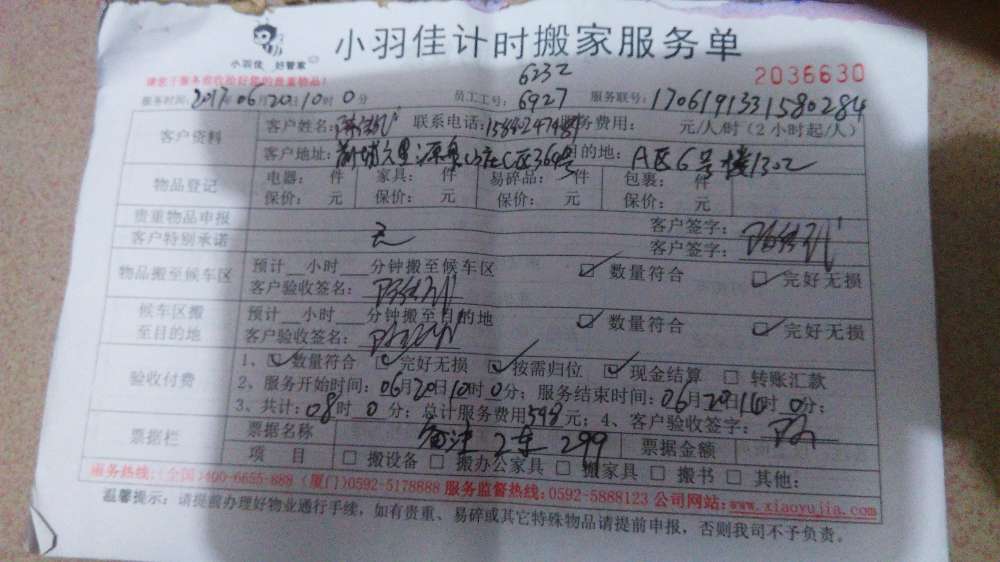 小羽佳计时搬家服务单
小羽佳 好管家
请您于服务前收拾好您的贵重物品!
2036630
6232
服务时间:2017年06月20日10时0分 员工工号:6927 服务联号:1706191331580284
客户资料
客户姓名: 联系电话: 服务费用: 元/人/时(2小时起/人)
客户地址: 目的地:A区6号楼1302
物品登记
电器: 件 家具: 件 易碎品: 件 包裹: 件
保价: 元 保价: 元 保价: 元 保价: 元
贵重物品申报 客户签字:
客户特别承诺 无 客户签字:
物品搬至候车区
预计 小时 分钟搬至候车区 ☑ 数量符合 ☑ 完好无损
客户验收签名:
候车区搬至目的地
预计 小时 分钟搬至目的地 ☑ 数量符合 ☑ 完好无损
客户验收签名:
验收付费
1、☑数量符合 ☑完好无损 ☑按需归位 ☑现金结算 □ 转账汇款
2、服务开始时间:06月20日10时0分;服务结束时间:06月20日14时0分;
3、共计:08时0分;总计服务费用598元;4、客户验收签字:
票据栏
票据名称 备注 2车 299 票据金额
项 目 □ 搬设备 □ 搬办公家具 □ 搬家具 □ 搬书 □ 其他:
服务热线:(全国)400-6655-888 (厦门)0592-5178888 服务监督热线:0592-5888123 公司网站:www.xiaoyujia.com
温馨提示:请提前办理好物业通行手续,如有贵重、易碎或其它特殊物品请提前申报,否则我司不予负责。